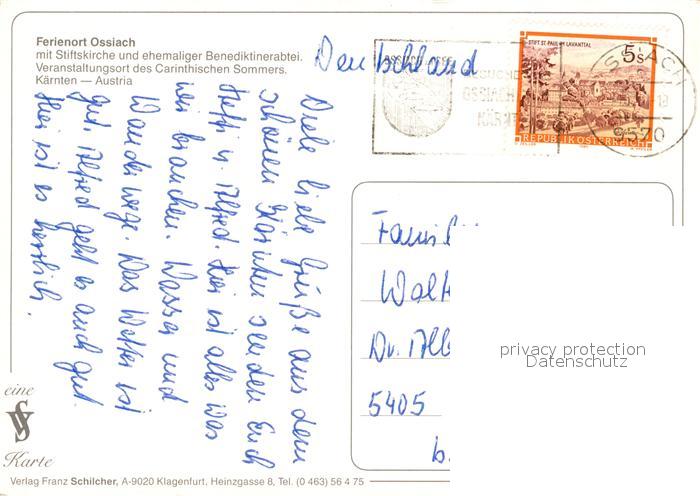 Ferienort Ossiach
mit Stiftskirche und ehemaliger Benediktinerabtei.
Veranstaltungsort des Carinthischen Sommers.
Kärnten — Austria
Deutschland
STIFT ST. PAUL IM LAVANTTAL
5 S
REPUBLIK ÖSTERREICH
OSSIACH
9570
Viele liebe Grüße aus dem
schönen Kärnten senden Euch
Steffi u. Alfred. Hier ist alles was
wir brauchen. Wasser und
Wanderwege. Das Wetter ist
gut. Alfred geht es auch gut.
Hier ist es herrlich.
Famil
Walt
Dr. Alb
5405
b.
privacy protection
Datenschutz
eine
Karte
Verlag Franz Schilcher, A-9020 Klagenfurt, Heinzgasse 8, Tel. (0 463) 56 4 75